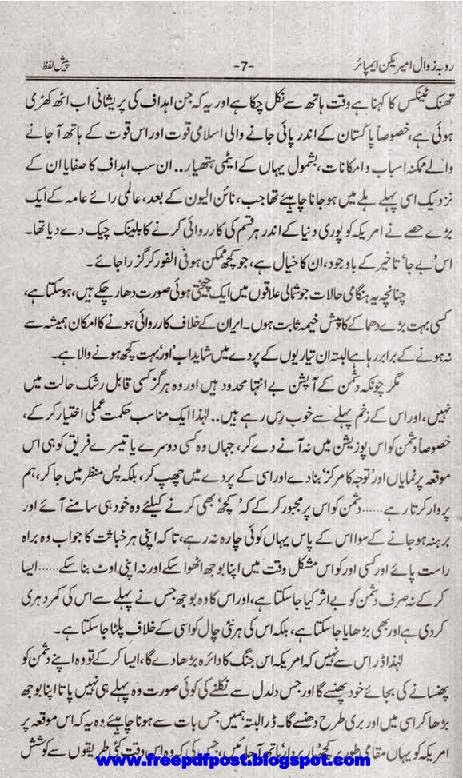 روبہ زوال امیریکن ایمپائر -7- پیش لفظ
تھنک ٹینکس کا کہنا ہے وقت ہاتھ سے نکل چکا ہے اور یہ کہ جن اہداف کی پریشانی اب اٹھ کھڑی
ہوئی ہے، خصوصاً پاکستان کے اندر پائی جانے والی اسلامی قوت اور اس قوت کے ہاتھ آ جانے
والے ممکنہ اسباب و امکانات، بشمول یہاں کے ایٹمی ہتھیار.. ان سب اہداف کا صفایا ان کے
نزدیک اسی پہلے ہلے میں ہو جانا چاہیئے تھا جب، نائن الیون کے بعد، عالمی رائے عامہ کے ایک
بڑے حصے نے امریکہ کو پوری دنیا کے اندر ہر قسم کی کارروائی کرنے کا بلینک چیک دے دیا تھا۔
اس 'بے جا' تاخیر کے باوجود، ان کا خیال ہے، جو کچھ ممکن ہو فی الفور کر گزرا جائے۔
چنانچہ یہ ہنگامی حالات جو شمالی علاقوں میں ایک چیختی ہوئی صورت دھار چکے ہیں، ہو سکتا ہے،
کسی بہت بڑے دھماکے کا پیش خیمہ ثابت ہوں۔ ایران کے خلاف کارروائی ہونے کا امکان ہمیشہ سے
نہ ہونے کے برابر رہا ہے البتہ ان تیاریوں کے پردے میں شاید اب 'اور' بہت کچھ ہونے والا ہے۔
مگر چونکہ دشمن کے آپشن بے انتہا محدود ہیں اور وہ ہرگز کسی قابل رشک حالت میں
نہیں، اور اس کے زخم پہلے سے خوب رِس رہے ہیں.. لہٰذا ایک مناسب حکمت عملی اختیار کر کے،
خصوصاً دشمن کو اس پوزیشن میں نہ آنے دے کر، جہاں وہ کسی دوسرے یا تیسرے فریق کو ہی اس
موقعہ پر نمایاں اور توجہ کا مرکز بنا دے اور اسی کے پردے میں چھپ کر، بلکہ پس منظر میں جا کر، ہم
پر وار کرتا رہے..... دشمن کو اس پر مجبور کر کے کہ 'کچھ' بھی کرنے کیلئے وہ خود ہی سامنے آئے اور
برہنہ ہو جانے کے سوا اس کے پاس یہاں کوئی چارہ نہ رہے، تاکہ اپنی ہر خباثت کا جواب وہ براہ
راست پائے اور کسی اور کو اس مشکل وقت میں اپنا بوجھ اٹھوا سکے اور نہ اپنی اوٹ بنا سکے..... ایسا
کر کے نہ صرف دشمن کو بے اثر کیا جا سکتا ہے، اور اس کا وہ بوجھ جس نے پہلے سے اس کی کمر دہری
کر دی ہے اور بھی بڑھایا جا سکتا ہے، بلکہ اس کی ہر نئی چال کو اسی کے خلاف پلٹا جا سکتا ہے۔
لہٰذا ڈر اس سے نہیں کہ امریکہ اس جنگ کا دائرہ بڑھا دے گا، ایسا کر کے تو وہ اپنے دشمن کو
پھنسانے کی بجائے خود پھنسے گا اور جس دلدل سے نکلنے کی کوئی صورت وہ پہلے ہی نہیں پاتا اپنا بوجھ
بڑھا کر اسی میں اور بری طرح دھنسے گا۔ ڈر البتہ ہمیں جس بات سے ہونا چاہیئے وہ یہ کہ اس موقعہ پر
امریکہ کو یہاں مقامی طور پر کچھ
www.freepdfpost.blogspot.com